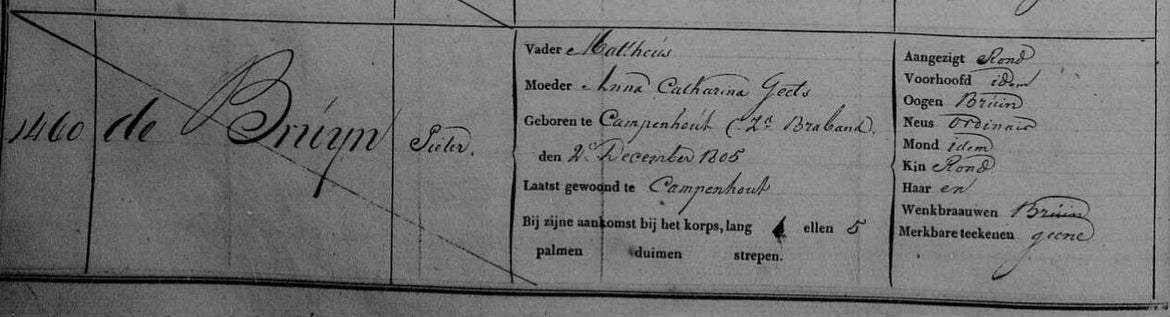 1460 de Bruyn Pieter.
Vader Matheus
Moeder Anna Catharina Geets
Geboren te Campenhout (Zd Braband.
den 2e December 1805
Laatst gewoond te Campenhout
Bij zijne aankomst bij het korps, lang 1 ellen 5
palmen duimen strepen.
Aangezigt Rond
Voorhoofd idem
Oogen Bruin
Neus Ordinair
Mond idem
Kin Rond
Haar en
Wenkbraauwen Bruin
Merkbare teekenen geene